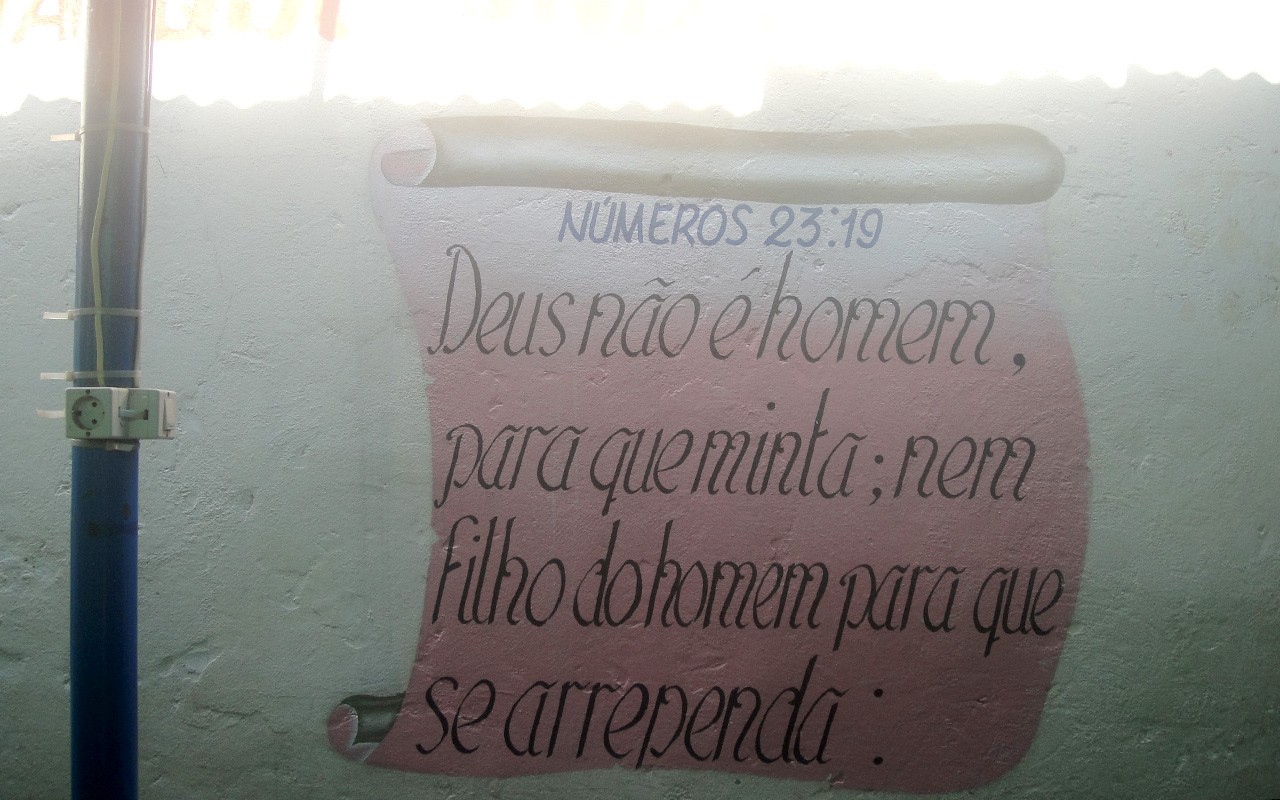 NÚMEROS 23:19
Deus não é homem,
para que minta; nem
filho do homem para que
se arrependa: